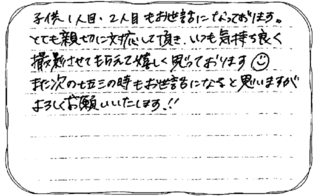 子供1人目、2人目もお世話になっております。
とても親切に対応して頂き、いつも気持ち良く
撮影させてもらえて嬉しく思っております☺
また次の七五三の時もお世話になると思いますが
よろしくお願いいたします!!